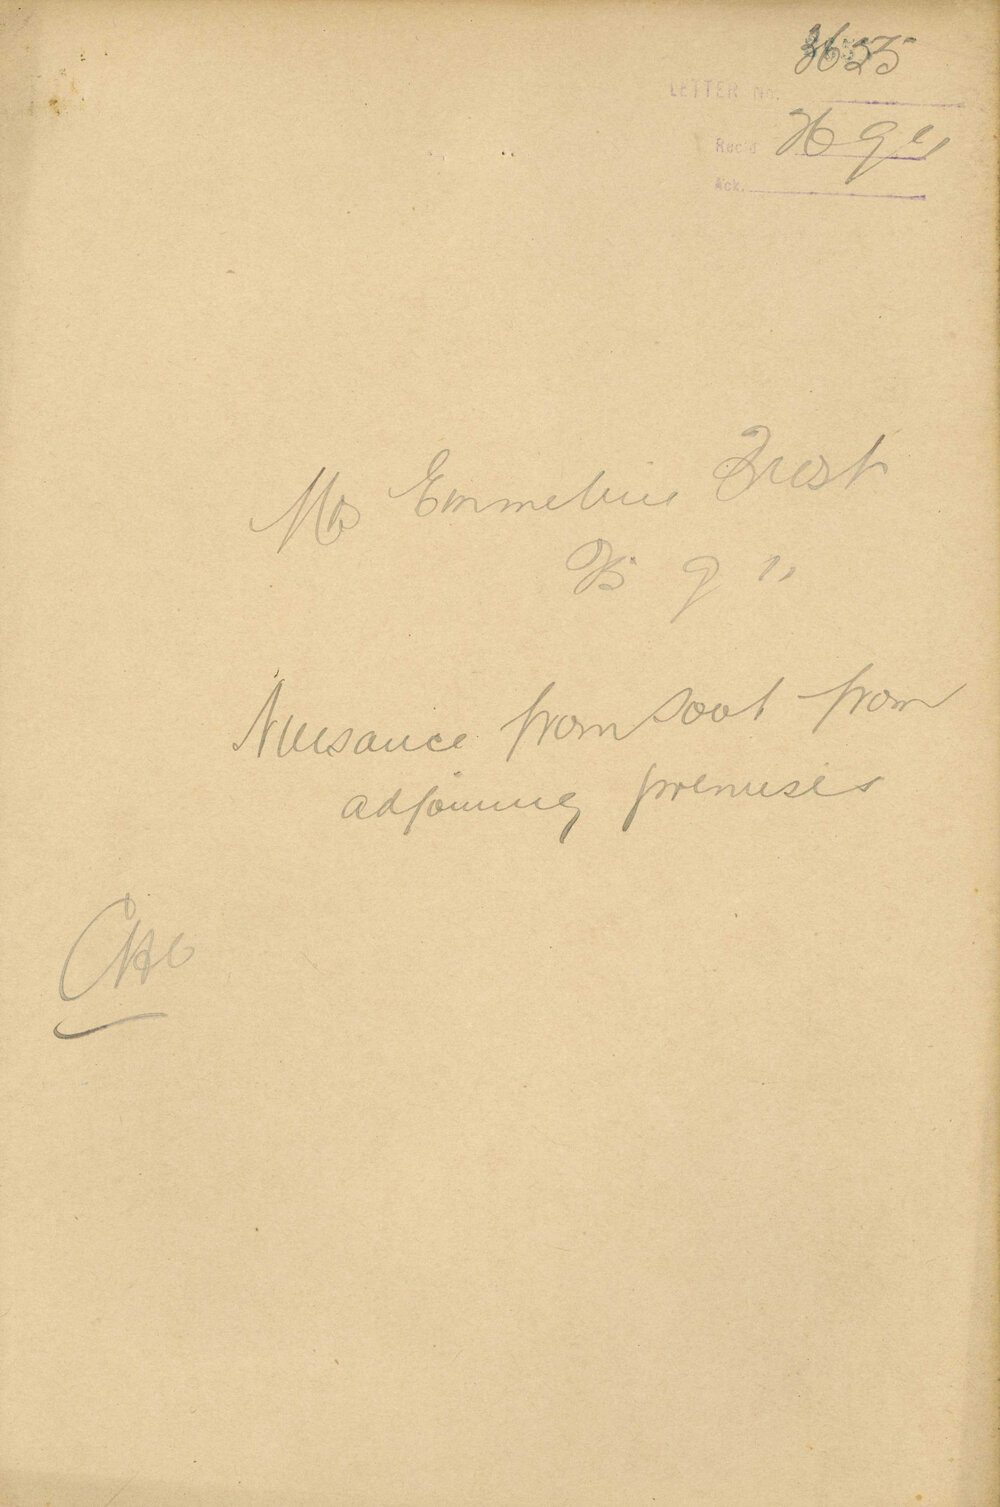 3625
LETTER No.
Rec'd 26 9 11
Ack.
Mrs Emmeline Frost
25 9 11
Nuisance from soot from
adjoining premises
CHO